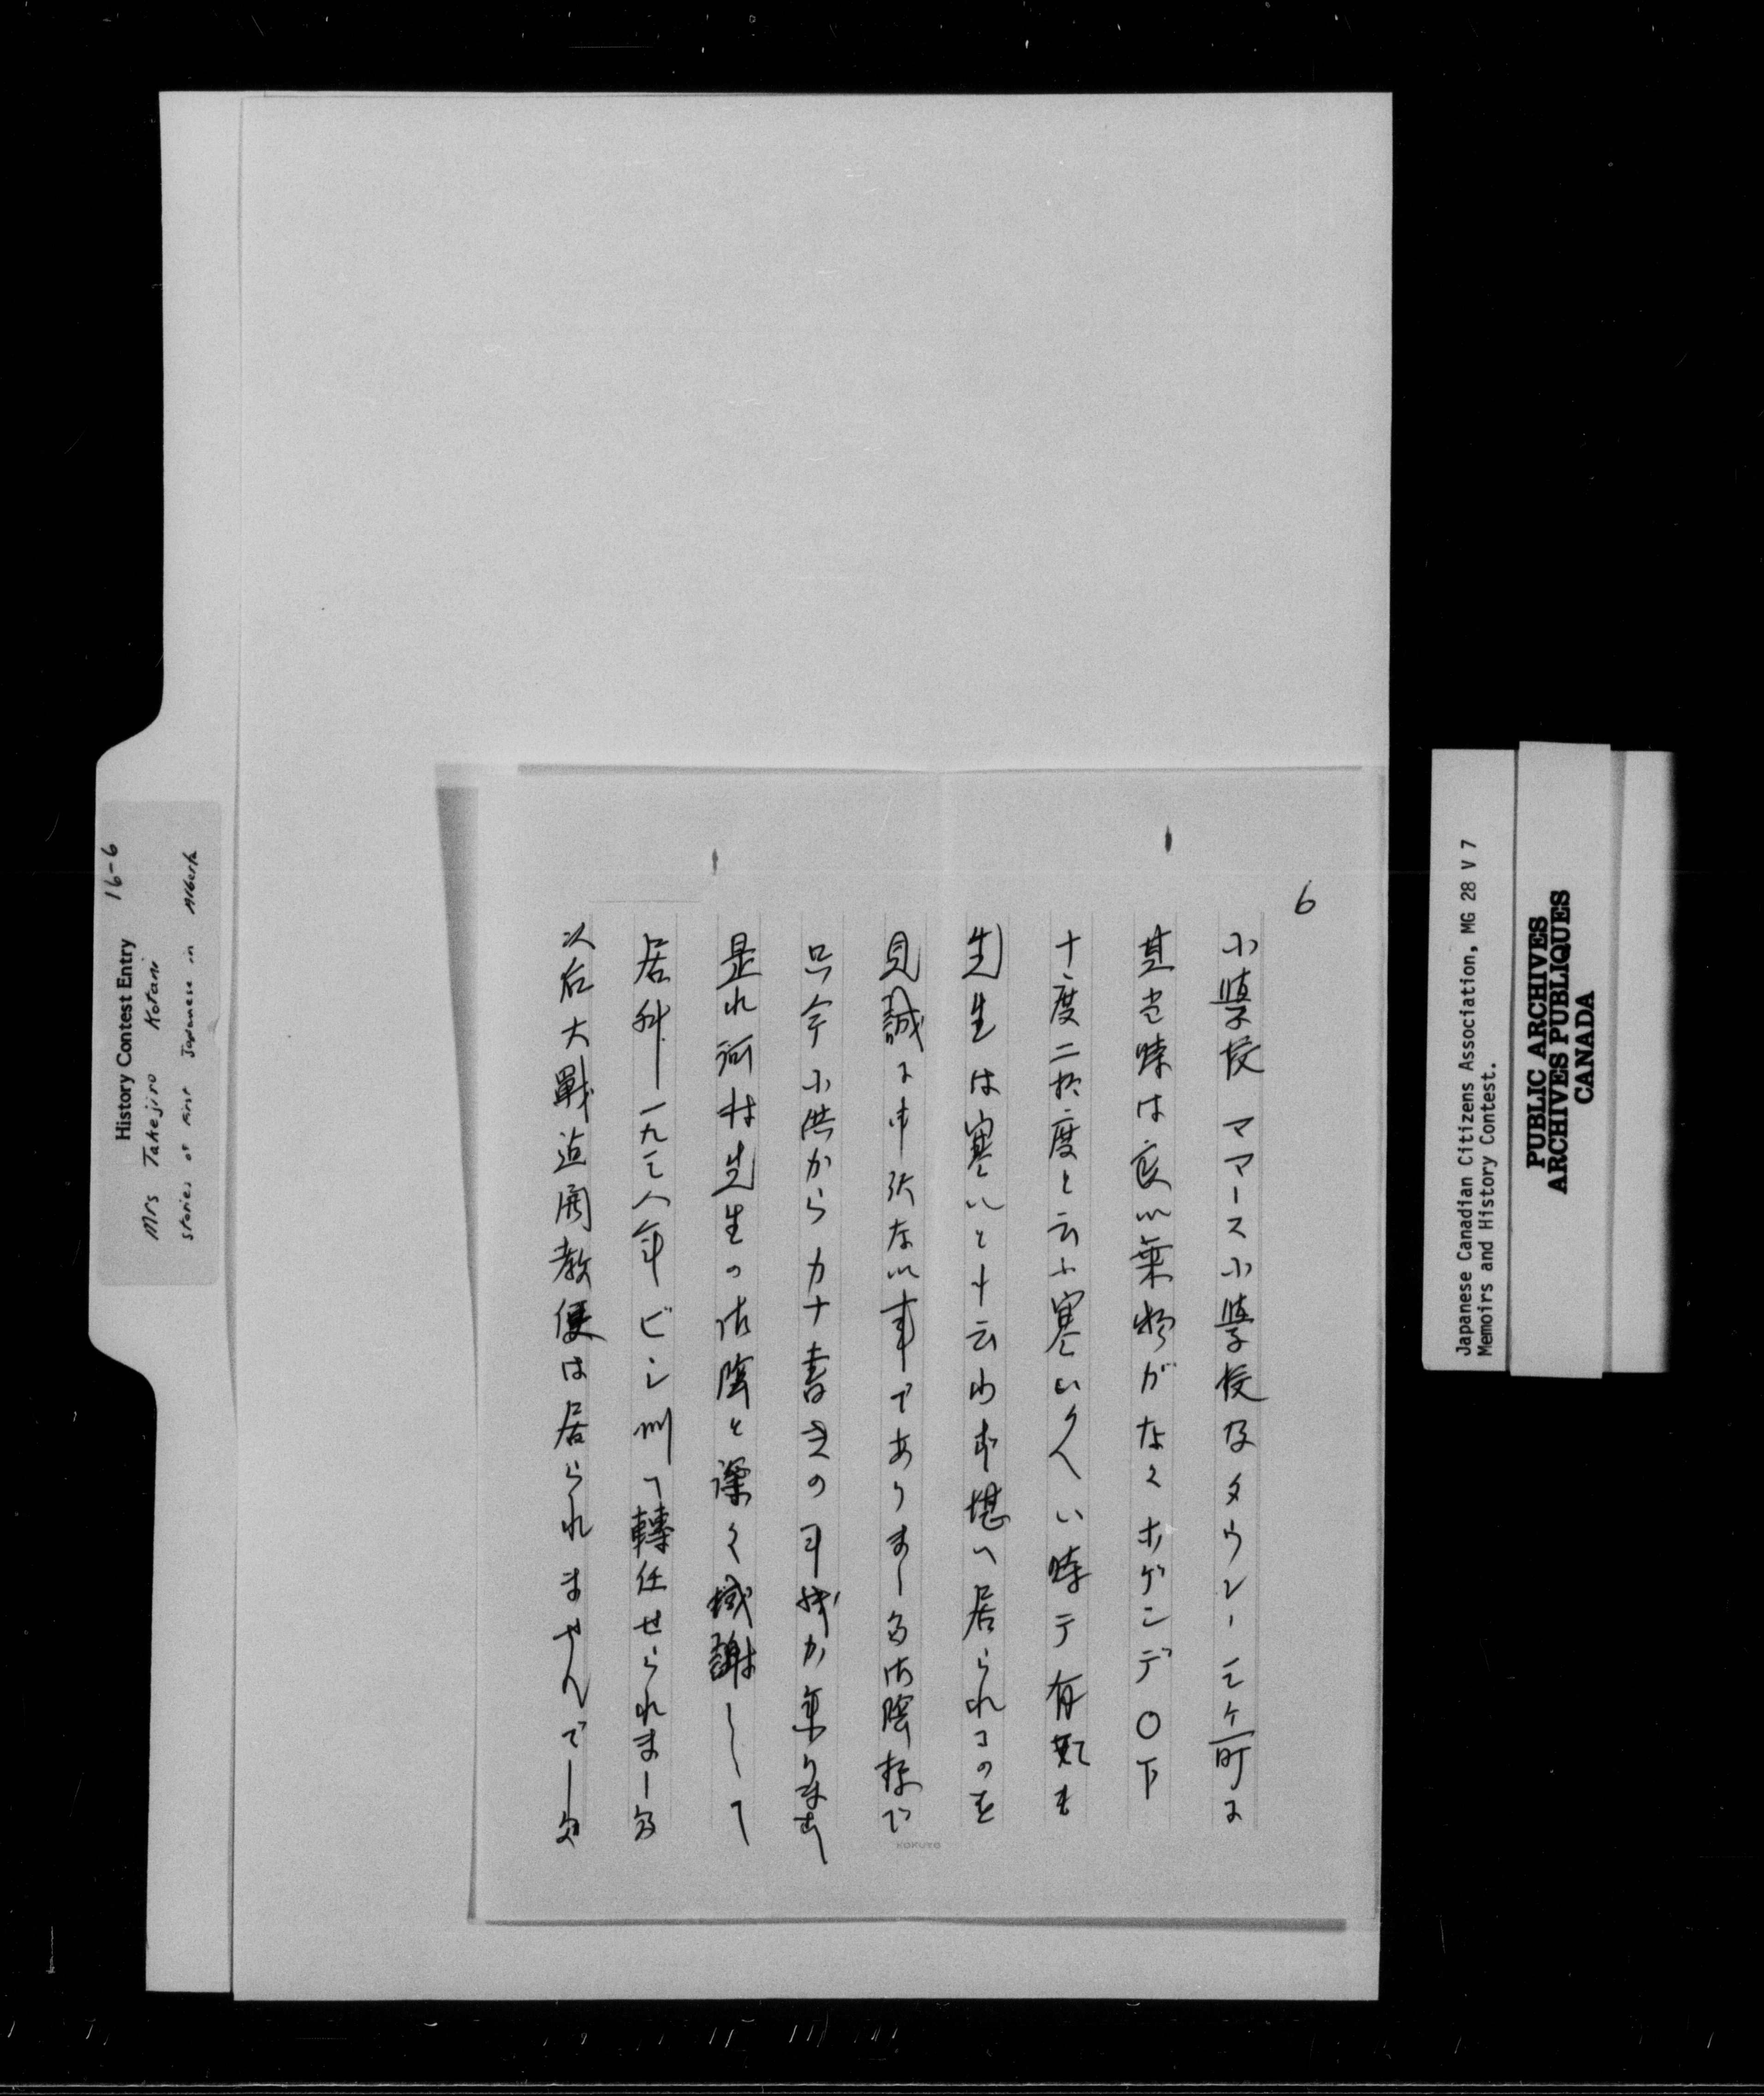 6
小學校 ママース小學校及タウレー三ケ町に
其当時は良い葉物がなくホゲンデ〇下
十度二十度と云ふ寒いくい時テ有
先生は寒いと云わ堪へ居られ
見誠に申訳ない事でありました御陰様で
只今小供からカナ書きの手紙か来ります
是れ河村先生の御陰と深く感謝して
居料一九三八年ビシ州へ轉任せられました
以后大戰迄開教使は居られませんでした
KOKUYO
History Contest Entry 16-6
Mrs Takejiro Kotani
stories of first Japanese in Alberta
Japanese Canadian Citizens Association, MG 28 V 7
Memoirs and History Contest.
PUBLIC ARCHIVES
ARCHIVES PUBLIQUES
CANADA